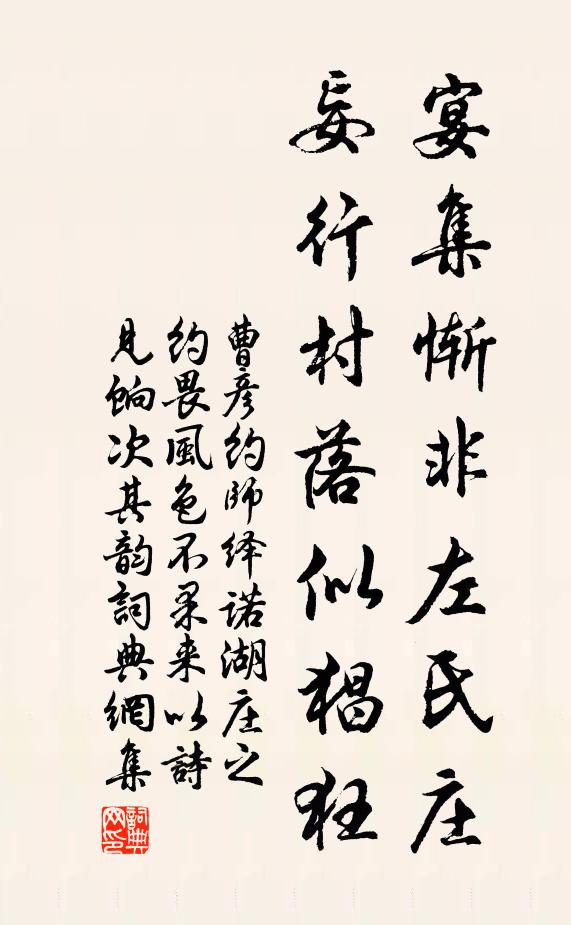 宴集惭非左氏庄
妄行村落似猖狂
曹彦约師绎诺湖庄之
约畏風色不果来以詩
見餉次其韵詞典網集
詞典网印